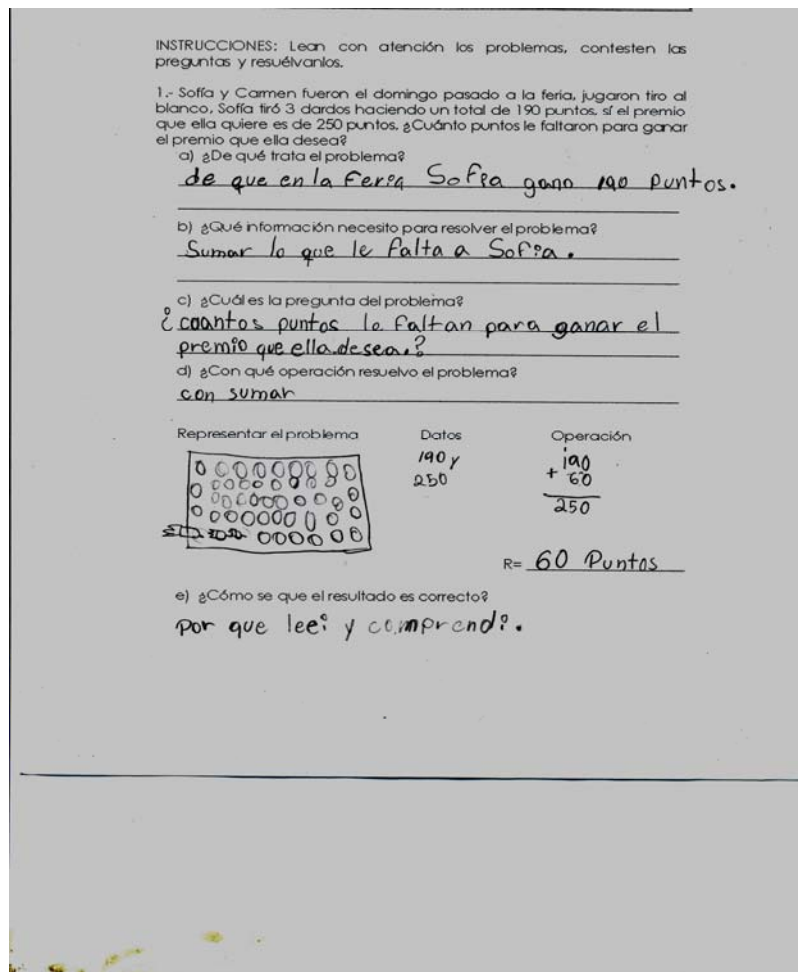 INSTRUCCIONES: Lean con atención los problemas, contesten las
preguntas y resuélvanlos.
1.- Sofía y Carmen fueron el domingo pasado a la feria, jugaron tiro al
blanco, Sofía tiró 3 dardos haciendo un total de 190 puntos, sí el premio
que ella quiere es de 250 puntos. ¿Cuánto puntos le faltaron para ganar
el premio que ella desea?
a) ¿De qué trata el problema?
de que en la feria Sofia gano 190 puntos.
b) ¿Qué información necesito para resolver el problema?
Sumar lo que le falta a Sofia.
c) ¿Cuál es la pregunta del problema?
¿coantos puntos le faltan para ganar el
premio que ella desea.?
d) ¿Con qué operación resuelvo el problema?
con sumar
Representar el problema Datos Operación
190 y
250
190
+ 60
250
R= 60 Puntos
e) ¿Cómo se que el resultado es correcto?
por que leei y comprendi.